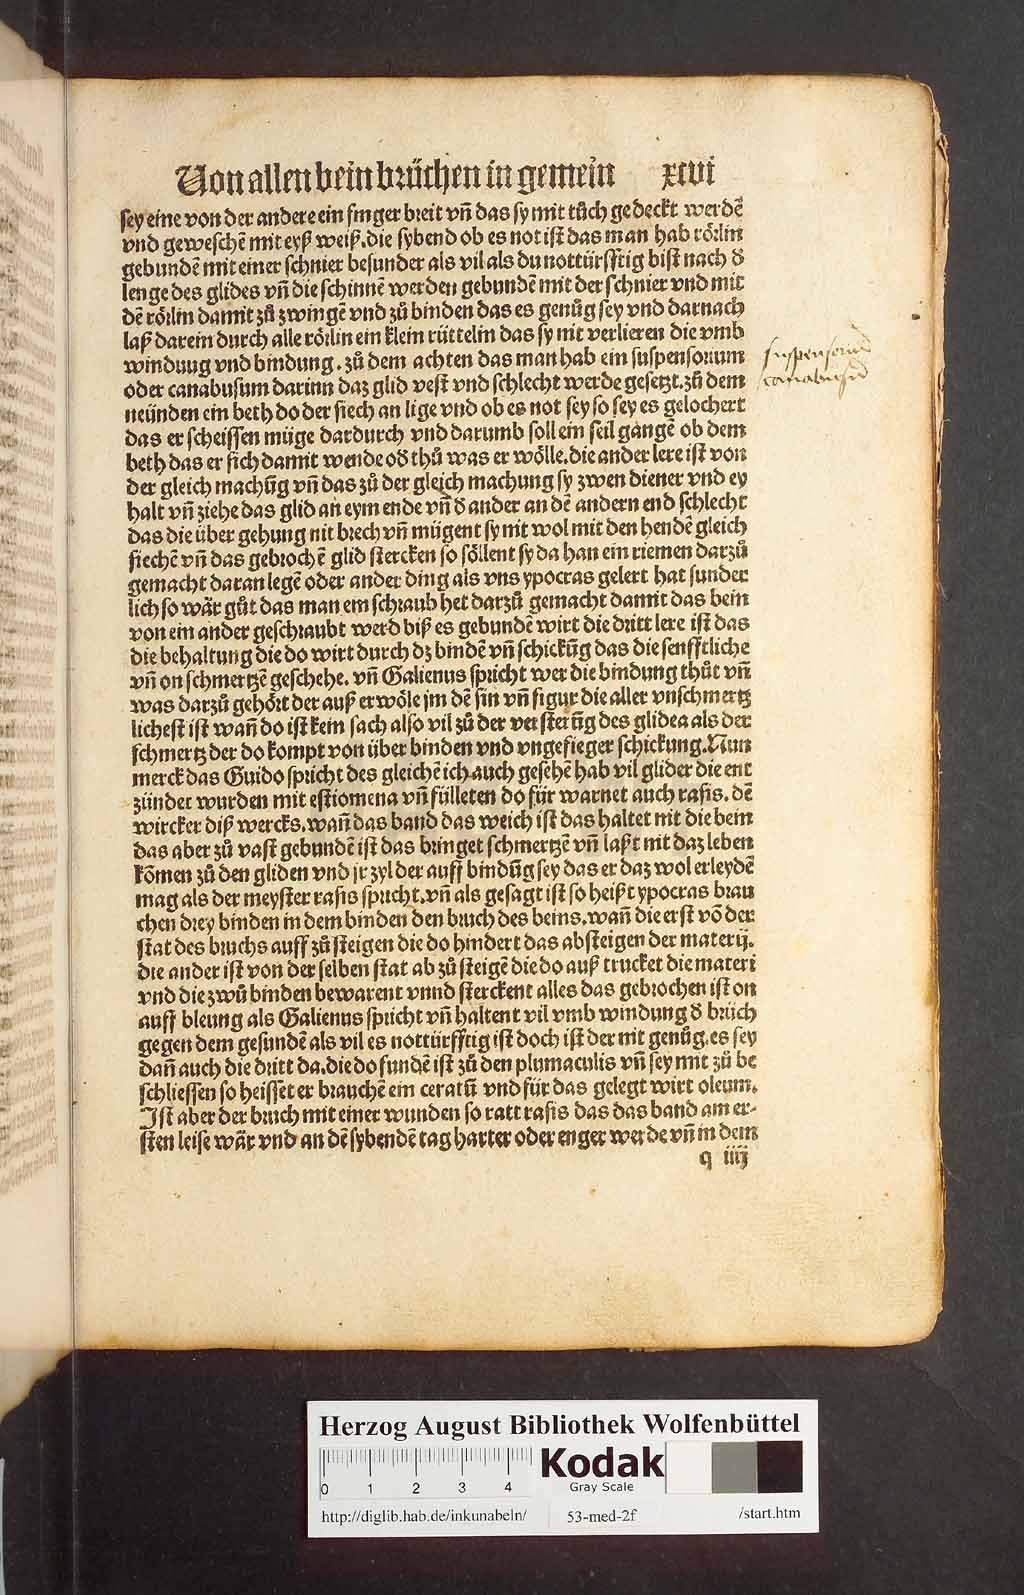 Von allen bein brüchen in gemein xcvi
sey eine von der andere ein finger breit vn̄ das sy mit tůch gedeckt werdē
vnd geweschē mit eyß weiß. die sybend ob es not ist das man hab rörlin
gebundē mit einer schnier besunder als vil als du nottürfftig bist nach d̄
lenge des glides vn̄ die schinnē werden gebundē mit der schnier vnd mit
dē rörlin damit zů zwingē vnd zů binden das es genůg sey vnd darnach
laß darein durch alle rörlin ein klein rüttelin das sy nit verlieren die vmb
windung vnd bindung. zů dem achten das man hab ein suspensorium
oder canabusum darinn daz glid vest vnd schlecht werde gesetzt. zů dem
neünden ein beth do der siech an lige vnd ob es not sey so sey es gelochert
das er scheissen müge dardurch vnd darumb soll ein seil gangē ob dem
beth das er sich damit wende od̄ thů was er wölle. die ander lere ist von
der gleich machūg vn̄ das zů der gleich machung sy zwen diener vnd ey
halt vn̄ ziehe das glid an eym ende vn̄ d̄ ander an dē andern end schlecht
das die über gehung nit brech vn̄ mügent sy nit wol mit den hendē gleich
siechē vn̄ das gebrochē glid stercken so söllent sy da han ein riemen darzů
gemacht daran legē oder ander ding als vns ypocras gelert hat sunder
lich so wär gůt das man ein schraub het darzů gemacht damit das bein
von ein ander geschraubt werd biß es gebundē wirt die dritt lere ist das
die behaltung die do wirt durch dz bindē vn̄ schickūg das die senfftliche
vn̄ on schmertzē geschehe. vn̄ Galienus spricht wer die bindung thůt vn̄
was darzů gehört der auß erwöle jm dē sin vn̄ figur die aller vnschmertz
lichest ist wan̄ do ist kein sach also vil zů der versterūg des glidea als der
schmertz der do kompt von über binden vnd vngefieger schickung. Nun
merck das Guido spricht des gleichē ich auch gesehē hab vil glider die ent
zündet wurden mit estiomena vn̄ fülleten do für warnet auch rasis. dē
wircker diß wercks. wan̄ das band das weich ist das haltet nit die bein
das aber zů vast gebundē ist das bringet schmertzē vn̄ laßt nit daz leben
kōmen zů den gliden vnd jr zyl der auff bindūg sey das er daz wol erleydē
mag als der meyster rasis spricht. vn̄ als gesagt ist so heißt ypocras brau
chen drey binden in dem binden den bruch des beins. wan̄ die erst vō der
stat des bruchs auff zů steigen die do hindert das absteigen der materij.
die ander ist von der selben stat ab zů steigē die do auß trucket die materi
vnd die zwů binden bewarent vnnd sterckent alles das gebrochen ist on
auff bleung als Galienus spricht vn̄ haltent vil vmb windung d̄ brüch
gegen dem gesundē als vil es nottürfftig ist doch ist der nit genůg. es sey
dan̄ auch die dritt da. die do fundē ist zů den plumaculis vn̄ sey mit zů be
schliessen so heisset er brauchē ein ceratū vnd für das gelegt wirt oleum.
Ist aber der bruch mit einer wunden so ratt rasis das das band am er-
sten leise wär vnd an dē sybendē tag harter oder enger werde vn̄ in dem
q iiij
suspensoriū
canabusū
Herzog August Bibliothek Wolfenbüttel
0 1 2 3 4
Kodak
Gray Scale
http://diglib.hab.de/inkunabeln/ 53-med-2f /start.htm